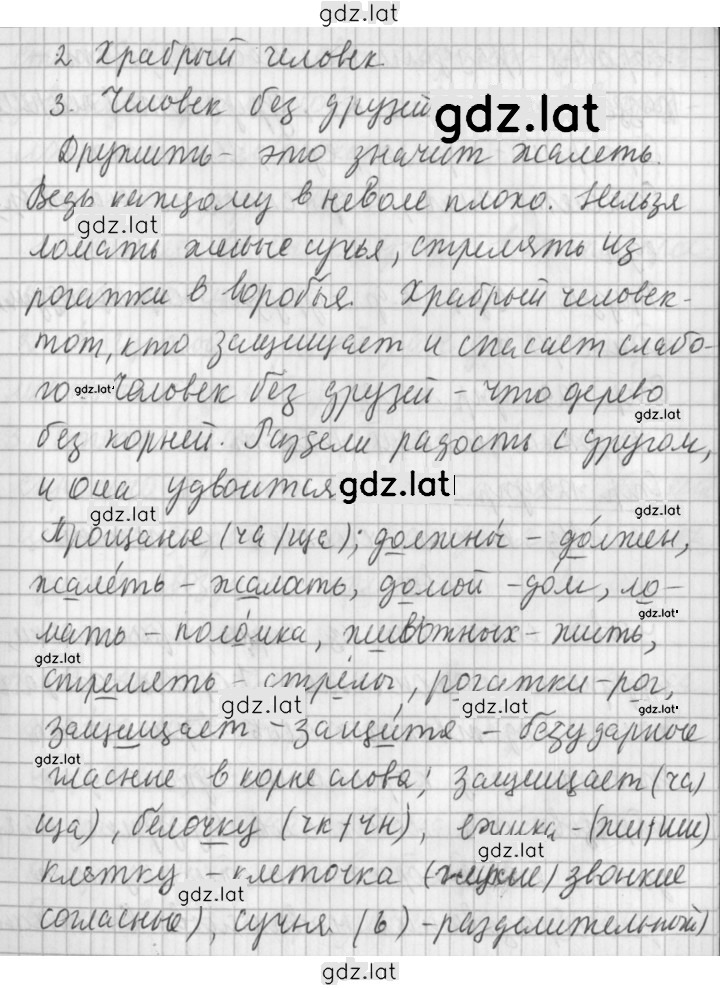 gdz.lat
2 Храбрый человек
3. Человек без друзей gdz.lat
Дружить - это значит жалеть.
Ведь каждому в неволе плохо. Нельзя
gdz.lat
ломать живые сучья, стрелять из
рогатки в воробья. Храбрый человек -
тот, кто защищает и спасает слабо-
го gdz.lat Человек без друзей - что дерево
gdz.lat
без корней. Раздели радость с другом,
и она удвоится gdz.lat
gdz.lat gdz.lat
Прощанье (ча/ща); должны́ - до́лжен,
жале́ть - жалость, домой - до́м, ло-
gdz.lat
мать - поло́мка, животных - жить,
gdz.lat
стрелять - стре́лы, рогатки - рог,
gdz.lat gdz.lat gdz.lat
защищает - защи́тя - безударные
gdz.lat
гласные в корне слова; защищает (ча/
ща), белочку (чк + чн), ежика - (жи/ши)
gdz.lat
клетку - клеточка (глухие) звонкие
gdz.lat
согласные), сучья (ь) - разделительный)
gdz.lat